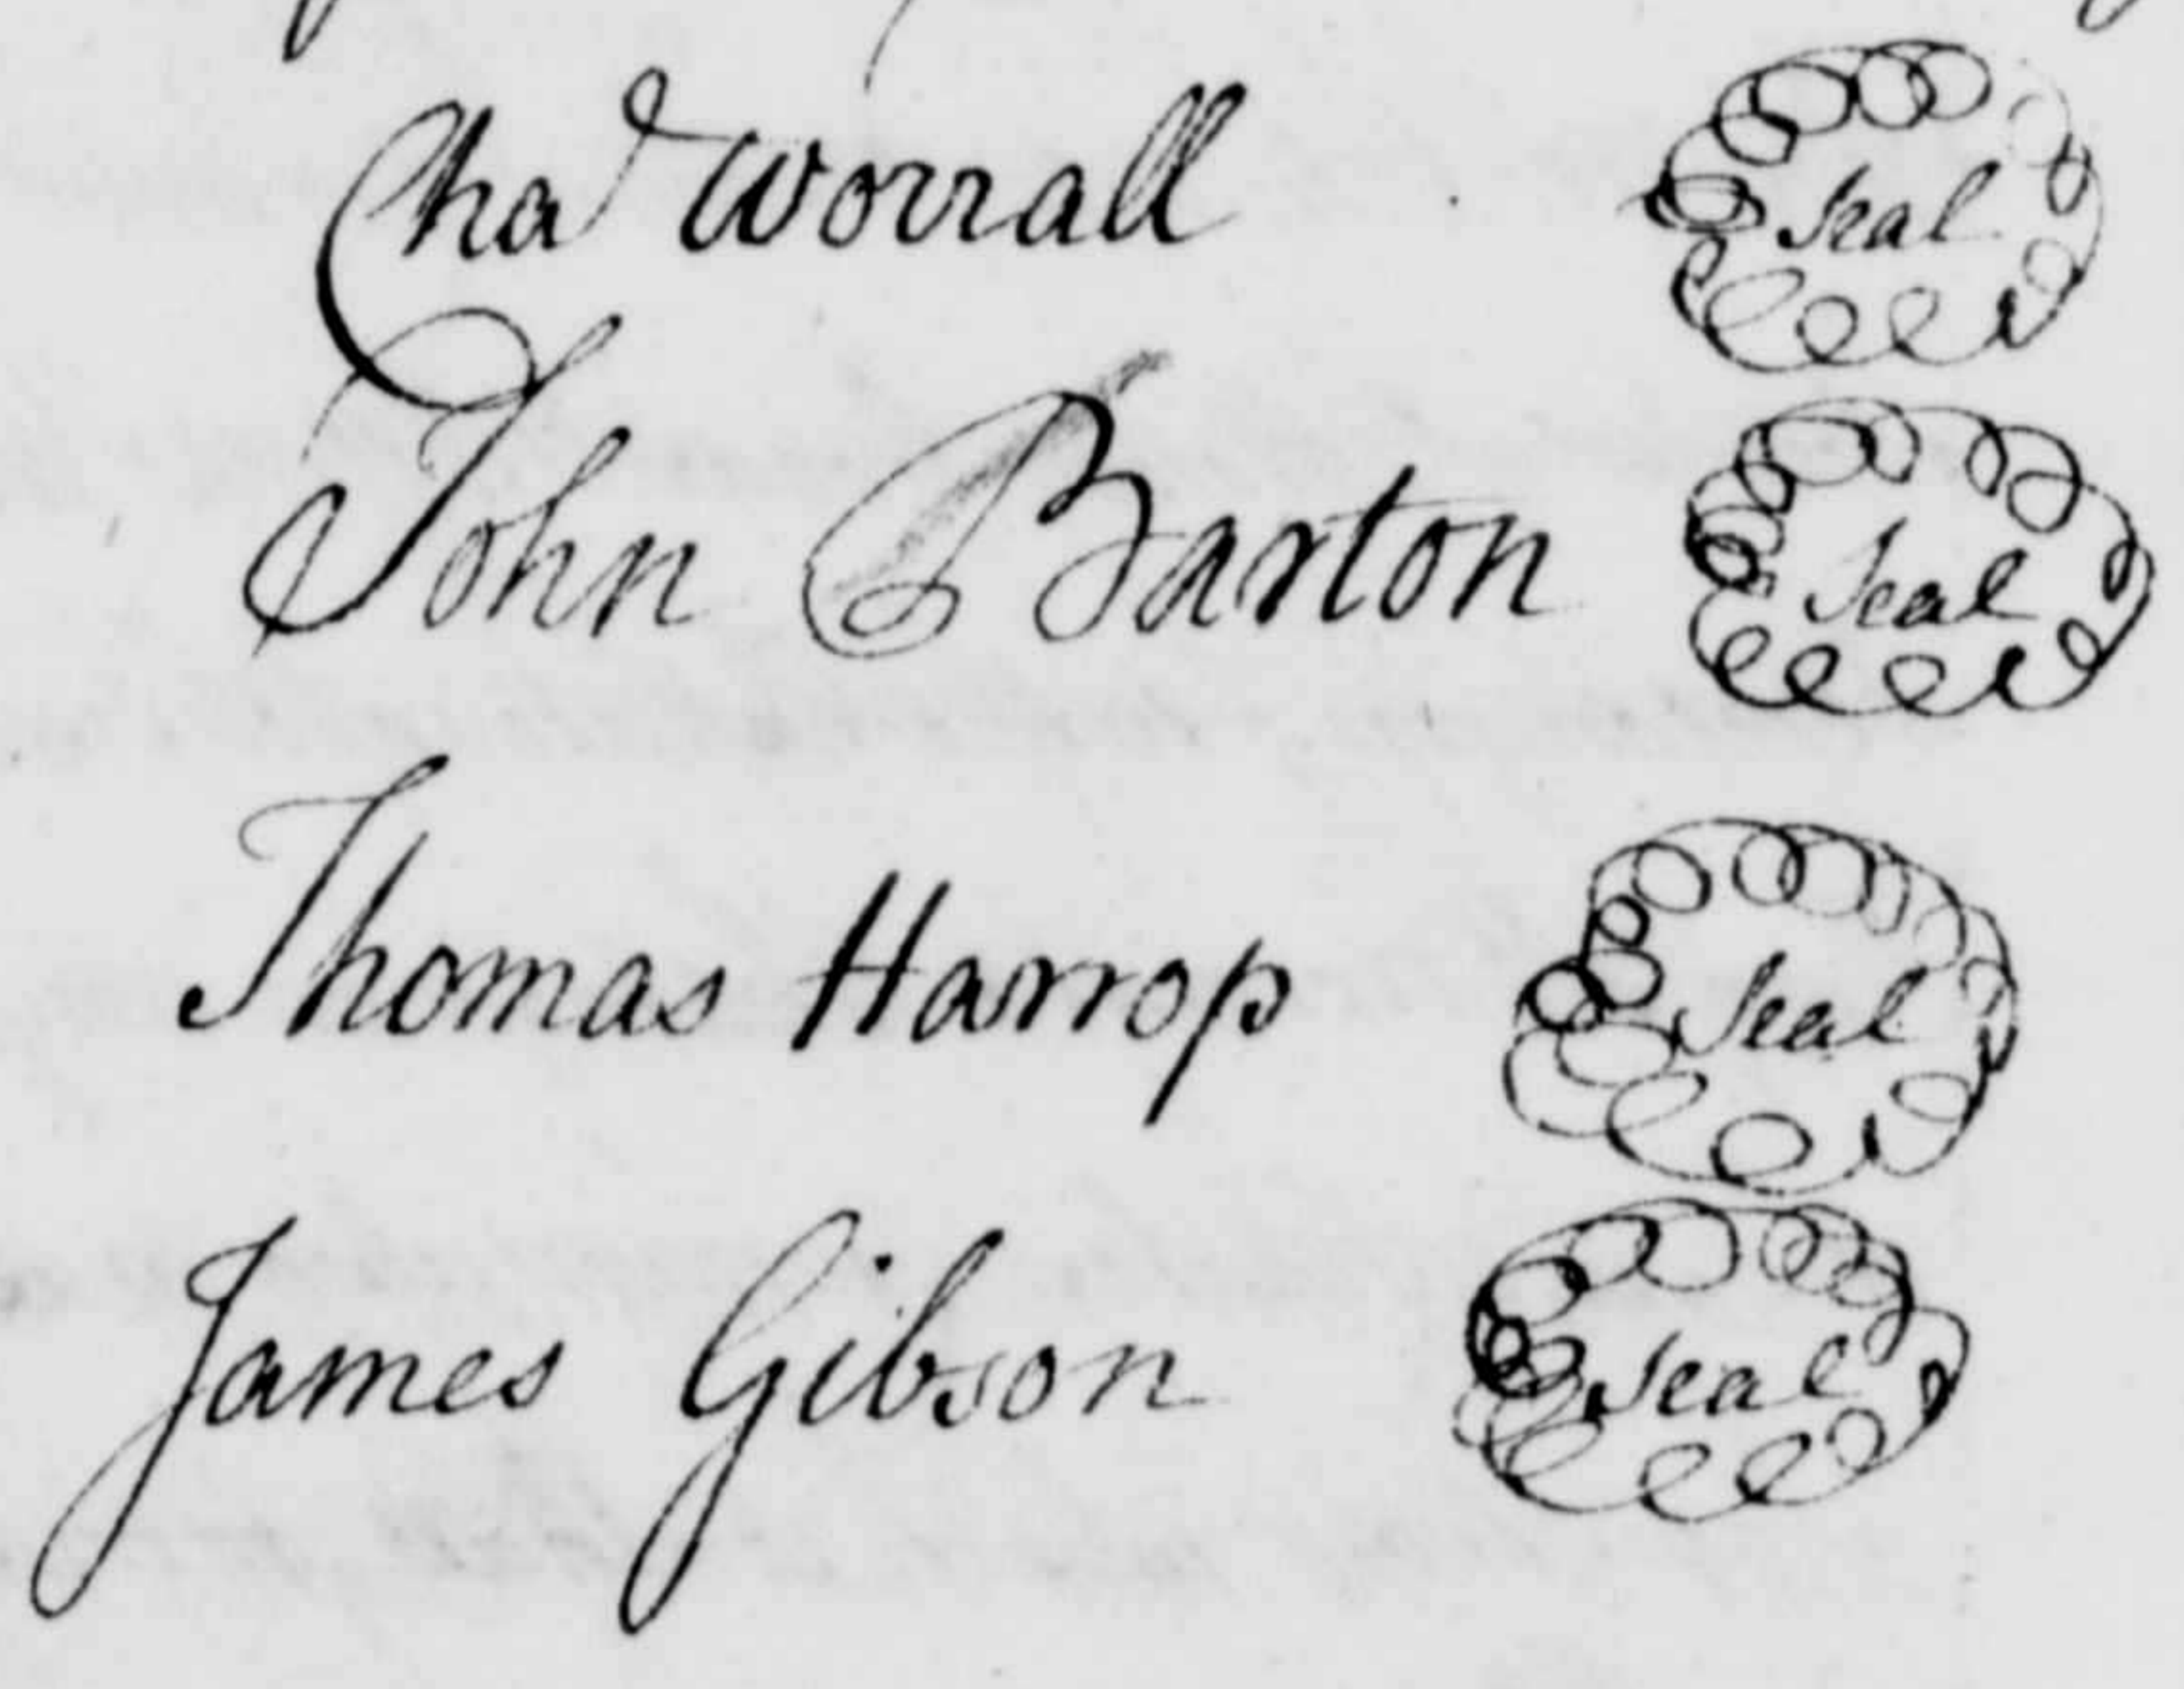 Chas Worrall Seal
John Barton Seal
Thomas Harrop Seal
James Gibson Seal